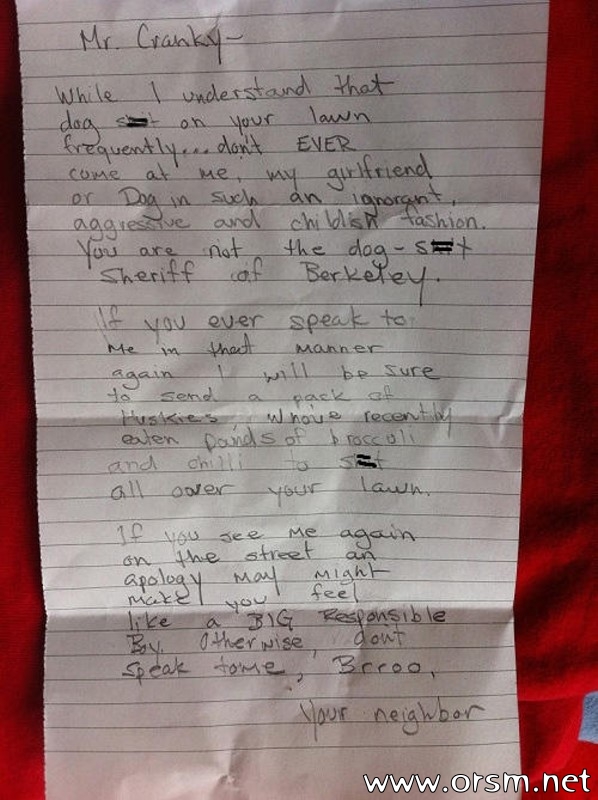 Mr. Cranky-
While I understand that
dog s▬t on your lawn
frequently...don't EVER
come at me, my girlfriend
or Dog in such an ignorant,
aggressive and childish fashion.
You are not the dog-s▬t
Sheriff of Berkeley.
If you ever speak to
me in that manner
again I will be sure
to send a pack of
Huskies, who've recently
eaten pands of broccoli
and chilli to s▬t
all over your lawn.
If you see me again
on the street an
apology may might
make you feel
like a BIG Responsible
Boy. Otherwise, dont
speak to me, Brroo.
Your neighbor
www.orsm.net